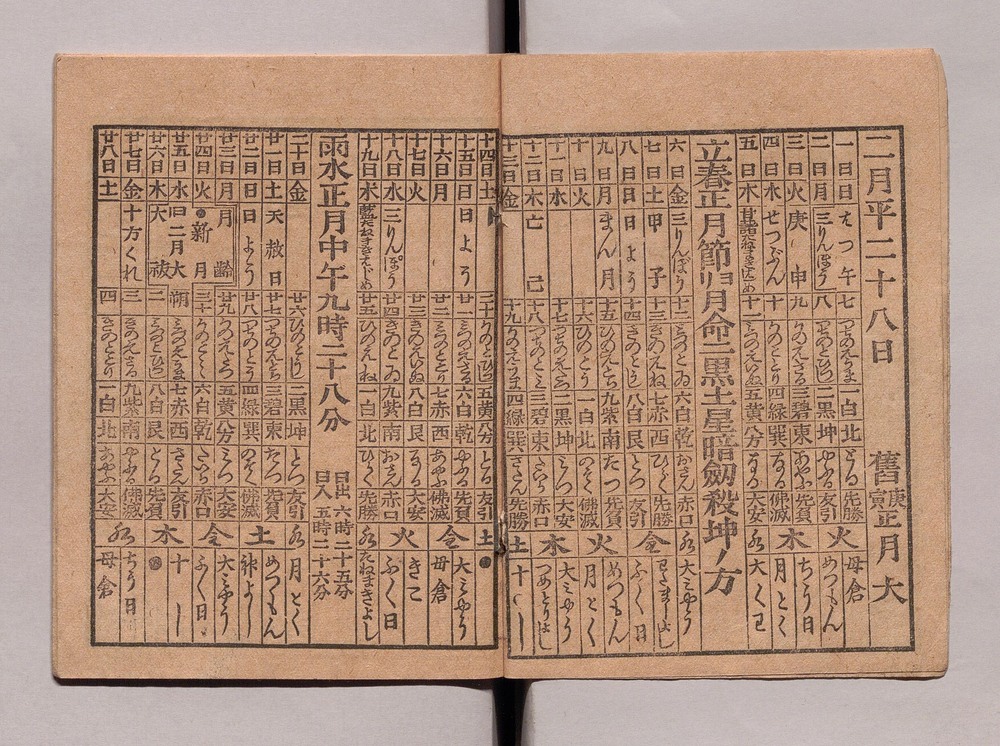 二月平二十八日 舊庚寅正月大
一日 日 はつ午 七 つちのえうま 一白 北 とる 先勝 火 母倉
二日 月 三りんぼう 八 つちのとひつじ 二黒 坤 やぶる 友引 めつもん
三日 火 庚申 九 かのえさる 三碧 東 あやふ 先負 木 ちう日
四日 水 せつぶん 十 かのととり 四緑 巽 なる 佛滅 月とく
五日 木 十一 みづのえいぬ 五黄 八方 なる 大安 水 大く已
立春正月節 旧月命二黒土星暗劔殺坤ノ方
六日 金 三りんぼう 十二 みづのとゐ 六白 乾 おさん 赤口 水 大みやう
七日 土 甲子 十三 きのえね 七赤 西 ひらく 先勝 金
八日 日 日よう 十四 きのとうし 八白 艮 とづ 友引 ふく日
九日 月 まん月 十五 ひのえとら 九紫 南 たつ 先負 火 めつもん
十日 火 十六 ひのとう 一白 北 のぞく 佛滅 月とく
十一日 水 十七 つちのえたつ 二黒 坤 みつ 大安 木 大みやう
十二日 木 亡己 十八 つちのとみ 三碧 東 たいら 赤口
十三日 金 十九 かのえうま 四緑 巽 さだん 先勝 土 十し
十四日 土 二十 かのとひつじ 五黄 八方 とる 友引 土
十五日 日 日よう 廿一 みづのえさる 六白 乾 やぶる 先負 金 大みやう
十六日 月 廿二 みづのととり 七赤 西 あやふ 佛滅 母倉
十七日 火 廿三 きのえいぬ 八白 艮 なる 大安 火 きこ
十八日 水 三りんぼう 廿四 きのとゐ 九紫 南 おさん 赤口 ふく日
十九日 木 廿五 ひのえね 一白 北 ひらく 先勝 水 たねまきよし
雨水正月中午九時二十八分 日出六時二十五分 日入五時二十六分
二十日 金 廿六 ひのとうし 二黒 坤 とづ 友引 水 月とく
廿一日 土 天赦日 廿七 つちのえとら 三碧 東 たつ 先負 土 めつもん
廿二日 日 日よう 廿八 つちのとう 四緑 巽 のぞく 佛滅 神よし
廿三日 月 月齢 廿九 かのえたつ 五黄 八方 みつ 大安 金 大みやう
廿四日 火 新月 三十 かのとみ 六白 乾 たいら 赤口 ふく日
廿五日 水 旧二月大 朔 みづのえうま 七赤 西 さだん 友引 木 十し
廿六日 木 大祓 二 みづのとひつじ 八白 艮 とる 先負
廿七日 金 十方くれ 三 きのえさる 九紫 南 やぶる 佛滅 水 ちう日
廿八日 土 四 きのととり 一白 北 あやふ 大安 母倉